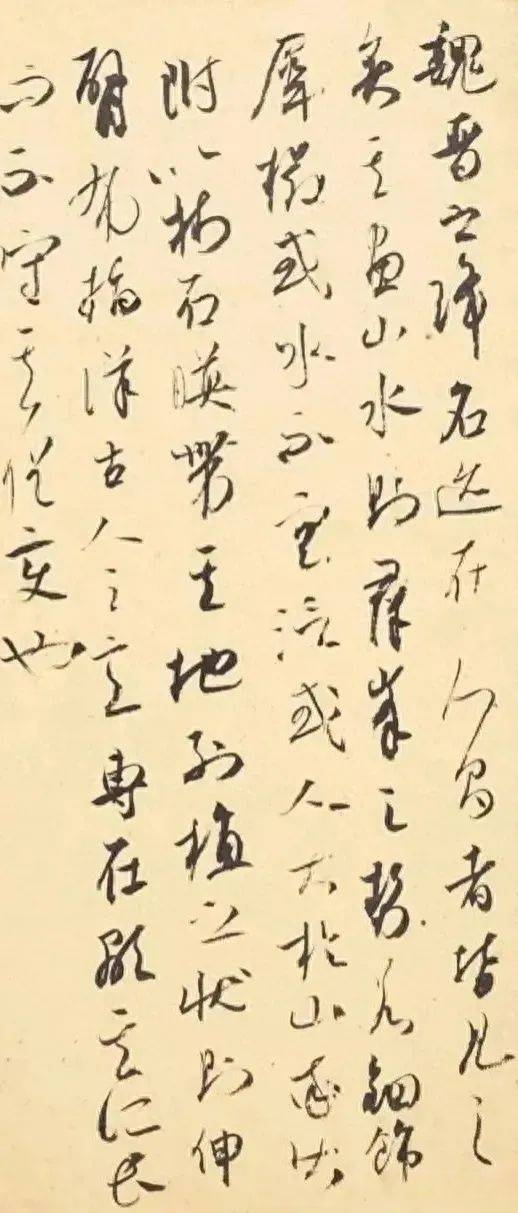 魏晉以降名迹在人間者皆見之
矣其畫山水則羣峯之勢若鈿飾
犀櫛或水不容泛或人大於山率皆
附以樹石暎帶其地列植之狀則伸
臂布指詳古人之意專在顯其所長
而不守其俗變也